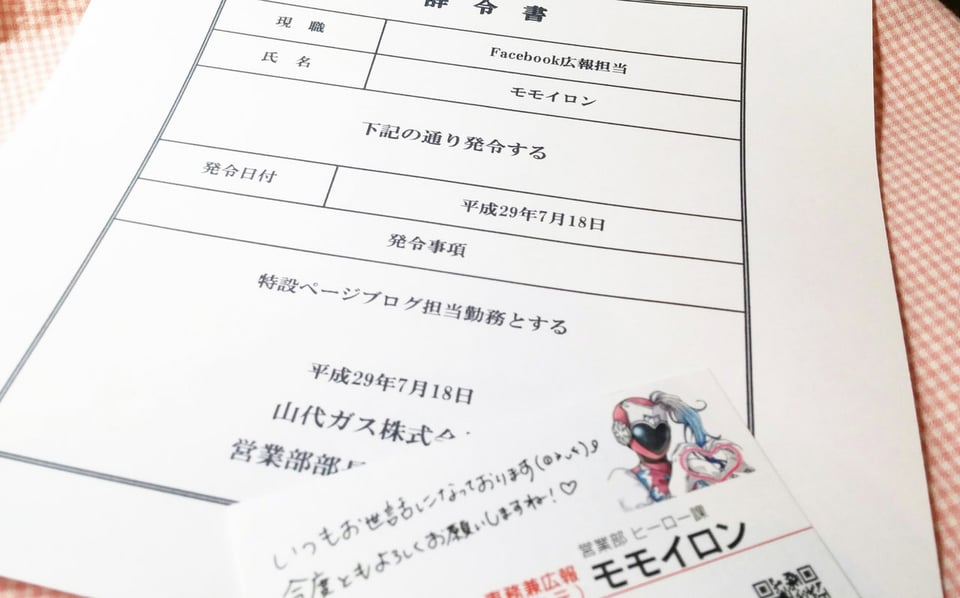 辞令書
現職 Facebook広報担当
氏名 モモイロン
下記の通り発令する
発令日付 平成29年7月18日
発令事項
特設ページブログ担当勤務とする
平成29年7月18日
山代ガス株式
営業部部
いつもお世話になっております
今度ともよろしくお願いしますね!♡
営業部 ヒーロー課
事務兼広報
モモイロン